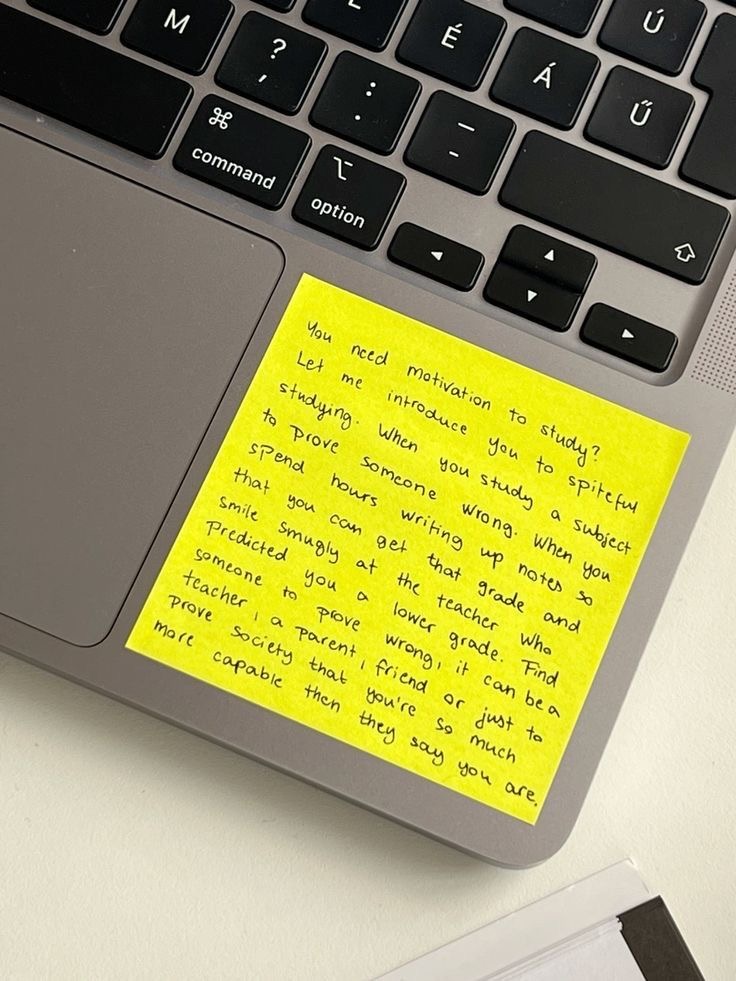 M
?
,
:
.
L
É
Á
Ú
Ű
–
-
⌘
command
⌥
option
◀
▲
▼
▶
You need motivation to study?
Let me introduce you to spiteful
studying. When you study a subject
to prove someone wrong. When you
spend hours writing up notes so
that you can get that grade and
smile smugly at the teacher who
predicted you a lower grade. Find
someone to prove wrong, it can be a
teacher, a parent, friend or just to
prove society that you're so much
more capable then they say you are.